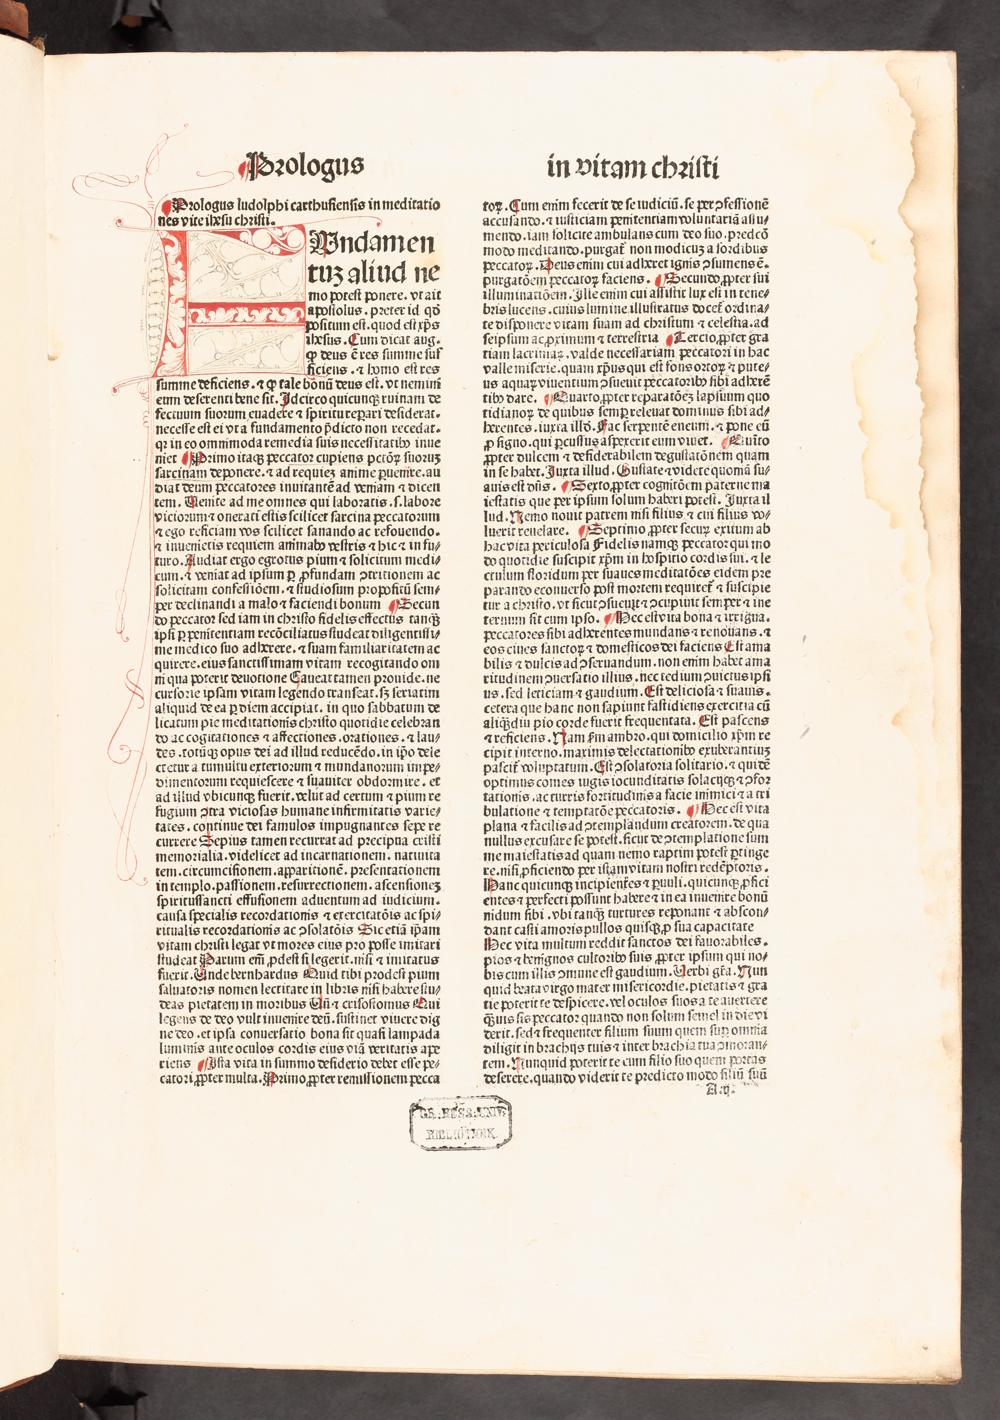 Prologus in vitam christi
Prologus ludolphi carthusiensis in meditatio
nes vite ihesu christi.
FUndamen
tuz aliud ne
mo potest ponere. vt ait
apostolus. preter id qď
positum est. quod est xp̄s
ihesus. Cum dicat aug.
ꝙ deus ē res summe suf
ficiens. ⁊ homo est res
summe deficiens. ⁊ ꝙ tale bonū deus est. vt nemini
eum deserenti bene sit. Idcirco quicunqꝫ ruinam de
fectuum suorum euadere ⁊ spiritu reꝑari desiderat.
necesse est ei vt a fundamento p̄dicto non recedat.
qꝛ in eo omnimoda remedia suis necessitatibꝰ inue
niet Primo itaqꝫ peccator cupiens pctōꝝ suoruꝫ
sarcinam deponere. ⁊ ad requieꝫ anime ꝑuenire. au
diat deum peccatores inuitantē ad veniam ⁊ dicen
tem. Uenite ad me omnes qui laboratis .s. labore
viciorum ⁊ onerati estis scilicet sarcina peccatorum
⁊ ego reficiam vos scilicet sanando ac refouendo.
⁊ inuenietis requiem animabꝰ vestris ⁊ hic ⁊ in fu/
turo. Audiat ergo egrotus pium ⁊ solicitum medi/
cum. ⁊ veniat ad ipsum ꝑ ꝓfundam ꝯtritionem ac
solicitam confessiōem. ⁊ studiosum propositū sem/
per declinandi a malo ⁊ faciendi bonum Secun
do peccator sed iam in christo fidelis effectus tanqꝫ
ipsi ꝑ penitentiam recōciliatus studeat diligentissi/
me medico suo adherere. ⁊ suam familiaritatem ac
quirere. eius sanctissimam vitam recogitando om
ni qua poterit deuotione Caueat tamen prouide. ne
cursorie ipsam vitam legendo transeat. sꝫ seriatim
aliquid de ea ꝑ diem accipiat. in quo sabbatum de
licatum pie meditationis christo quotidie celebran
do ac cogitationes ⁊ affectiones. orationes. ⁊ lau/
des. totūqꝫ opus dei ad illud reducēdo. in ip̄o dele
ctetur a tumultu exteriorum ⁊ mundanorum impe/
dimentorum requiescere ⁊ suauiter obdormire. et
ad illud vbicunqꝫ fuerit. velut ad certum ⁊ pium re
fugium ꝯtra viciosas humane infirmitatis varie/
tates. continue dei famulos impugnantes sepe re
currere Sepius tamen recurrat ad precipua cristi
memorialia. videlicet ad incarnationem. natiuita
tem. circumcisionem. apparitionē. presentationem
in templo. passionem. resurrectionem. ascensioneꝫ
spiritussancti effusionem aduentum ad iudicium.
causa specialis recordationis ⁊ exercitatōis ac spi/
ritualis recordationis ac ꝯsolatōis Sic etiā ip̄am
vitam christi legat vt mores eius pro posse imitari
studeat Parum em̄ ꝓdest si legerit. nisi ⁊ imitatus
fuerit. Unde bernhardus Quid tibi prodest pium
saluatoris nomen lectitare in libris nisi habere stu/
deas pietatem in moribus Uñ ⁊ crisostomus Qui
legens de deo vult inuenire deū. sustinet viuere dig
ne deo. et ipsa conuersatio bona sit quasi lampada
luminis ante oculos cordis eius viā veritatis ape
riens Ista vita in summo desiderio debet esse pe/
catori ꝓpter multa. Primo ꝓpter remissionem pecca
toꝝ. Cum enim fecerit de se iudiciū. se per ꝯfessionē
accusando. ⁊ iusticiam penitentiam voluntariā assu/
mendo. iam solicite ambulans cum deo suo. predcō
modo meditando. purgatʳ non modicuꝫ a sordibus
peccatoꝝ. Deus enim cui adheret ignis ꝯsumens ē
purgatōem peccatoꝝ faciens. Secundo ꝓpter sui
illuminatiōem. Ille enim cui assistit lux est in tene/
bris lucens. cuius lumine illustratus docetʳ ordina/
te disponere vitam suam ad christum ⁊ celestia. ad
seipsum ac ꝓximum ⁊ terrestria Tercio ꝓpter gra
tiam lacrimaꝝ. valde necessariam peccatori in hac
valle miserie. quam xp̄us qui est fons ortoꝝ ⁊ pute/
us aquaꝝ viuentium ꝯsueuit peccatoribꝰ sibi adherē
tibꝰ dare. Quarto ꝓpter reparatōeꝫ lapsuum quo
tidianoꝝ de quibus semꝑ releuat dominus sibi ad/
herentes. iuxta illď. Fac serpentē eneum. ⁊ pone eū
ꝓ signo. qui ꝑcussus aspexerit eum viuet. Quīto
ꝓpter dulcem ⁊ desiderabilem degustatōnem quam
in se habet. Juxta illud. Gustate ⁊ videte quoniā su/
auis est dn̄s. Sexto ꝓpter cognitōem paterne ma
iestatis que per ipsum solum haberi potest. Juxta il
lud. Nemo nouit patrem nisi filius ⁊ cui filius vo/
luerit reuelare. Septimo ꝓpter securꝫ exitum ab
hac vita periculosa Fidelis namqꝫ peccator qui mo
do quotidie suscipit xp̄m in hospitio cordis sui. ⁊ le
ctulum floridum per suaues meditatōes eidem pre
parando econuerso post mortem requiretʳ ⁊ suscipie
tur a christo. vt sicut ꝯsueuit ⁊ ꝯcupiuit semper ⁊ ine
ternum sit cum ipso. Hec est vita bona ⁊ irrigua.
peccatores sibi adherentes mundans ⁊ renouans. ⁊
eos ciues sanctoꝝ ⁊ domesticos dei faciens Est ama
bilis ⁊ dulcis ad ꝯseruandum. non enim habet ama
ritudinem ꝯuersatio illius. nec tedium ꝯuictus ipsi
us. sed leticiam ⁊ gaudium. Est deliciosa ⁊ suauis.
cetera que hanc non sapiunt fastidiens exercitia cū
aliqꝫdiu pio corde fuerit frequentata. Est pascens
⁊ reficiens. Nam fm ambro. qui domicilio xp̄m re
cipit interno. maximis delectationibꝰ exuberantiuꝫ
pascitʳ voluptatum. Est ꝯsolatoria solitario. ⁊ quidē
optimus comes iugis iocunditatis solacijqꝫ ⁊ ꝯfor
tationis. ac turris fortitudinis a facie inimici ⁊ a tri
bulatione ⁊ temptatōe peccatoris. Hec est vita
plana ⁊ facilis ad ꝯtemplandum creatorem. de qua
nullus excusare se potest. sicut de ꝯtemplatione sum
me maiestatis ad quam nemo raptim potest ꝑtinge
re. nisi ꝓficiendo per istam vitam nostri redēptoris.
Hanc quicunqꝫ incipientes ⁊ ꝑuuli. quicunqꝫ ꝓfici
entes ⁊ perfecti possunt habere ⁊ in ea inuenire bonū
nidum sibi. vbi tanqꝫ turtures reponant ⁊ abscon/
dant casti amoris pullos quisqꝫ ꝓ sua capacitate
Hec vita multum reddit sanctos dei fauorabiles.
pios ⁊ benignos cultoribꝰ suis ꝓpter ipsum qui no/
bis cum illis ꝯmune est gaudium. Uerbi grā. Nun
quid beata virgo mater misericordie. pietatis ⁊ gra
tie poterit te despicere. vel oculos suos a te auertere
qꝫuis sis peccator quando non solum semel in die vi
derit. sed ⁊ frequenter filium suum quem sup omnia
diligit in brachijs tuis ⁊ inter brachia tua ꝯmoran/
tem. Nunquid poterit te cum filio suo quem portas
deserere. quando viderit te predicto modo filiū suū
A.ij.
BIBLIOTHEK